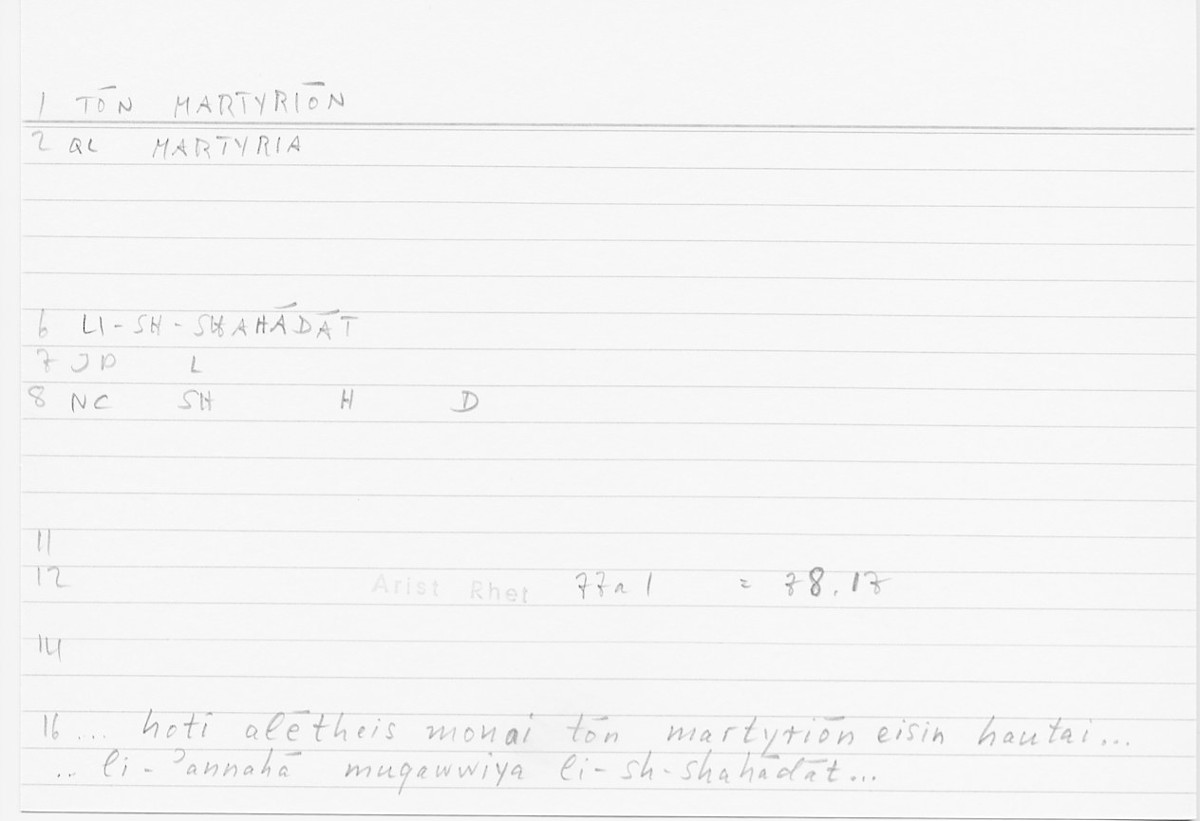 1 TŌN MARTYRIŌN
2 QL MARTYRIA
6 LI-SH-SHAHĀDĀT
7 JP L
8 NC SH H D
11
12 Arist Rhet 77a1 = 78.17
14
16 ... hoti alētheis monai tōn martyriōn eisin hautai...
.. li-ʾannahā muqawwiya li-sh-shahādāt...